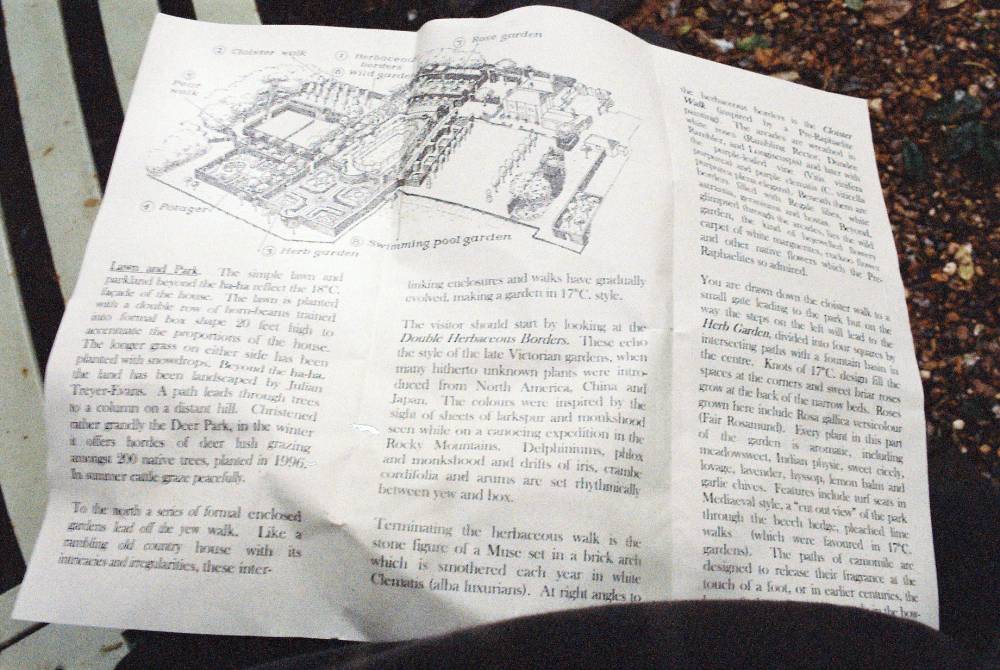 ② Cloister walk
① Herbaceous
borders
⑥ Wild garden
⑦ Rose garden
walk
④ Potager
⑤ Herb garden
⑧ Swimming pool garden
Lawn and Park. The simple lawn and
parkland beyond the ha-ha reflect the 18°C.
façade of the house. The lawn is planted
with a double row of horn-beams trained
into formal box shape 20 feet high to
accentuate the proportions of the house.
The longer grass on either side has been
planted with snowdrops. Beyond the ha-ha,
the land has been landscaped by Julian
Treyer-Evans. A path leads through trees
to a column on a distant hill. Christened
rather grandly the Deer Park, in the winter
it offers hordes of deer lush grazing
amongst 200 native trees, planted in 1996.
In summer cattle graze peacefully.
To the north a series of formal enclosed
gardens lead off the yew walk. Like a
rambling old country house with its
intricacies and irregularities, these inter-
linking enclosures and walks have gradually
evolved, making a garden in 17°C. style.
The visitor should start by looking at the
Double Herbaceous Borders. These echo
the style of the late Victorian gardens, when
many hitherto unknown plants were intro-
duced from North America, China and
Japan. The colours were inspired by the
sight of sheets of larkspur and monkshood
seen while on a canoeing expedition in the
Rocky Mountains. Delphiniums, phlox
and monkshood and drifts of iris, crambe
cordifolia and arums are set rhythmically
between yew and box.
Terminating the herbaceous walk is the
stone figure of a Muse set in a brick arch
which is smothered each year in white
Clematis (alba luxurians). At right angles to
the herbaceous borders is the Cloister
Walk (inspired by a Pre-Raphaelite
painting). The arcades are wreathed in
white roses (Rambling Rector, Dundee
Rambler, and Longicuspis) and later with
the purple-leafed vine (Vitis vinifera
purpurea) and purple clematis (C. viticella
purpurea plena elegans). Beneath them are
borders filled with Regale lilies, white
geraniums and hostas. Beyond,
glimpsed through the arcades, lies the wild
garden, the kind of bejewelled, flowery
carpet of white marguerites, cuckoo flower
and other native flowers which the Pre-
Raphaelites so admired.
You are drawn down the cloister walk to a
small gate leading to the park but on the
way the steps on the left will lead to the
Herb Garden, divided into four squares by
intersecting paths with a fountain basin in
the centre. Knots of 17°C. design fill the
spaces at the corners and sweet briar roses
grow at the back of the narrow beds. Roses
grown here include Rosa gallica versicolour
(Fair Rosamund). Every plant in this part
of the garden is aromatic, including
meadowsweet, Indian physic, sweet cicely,
lovage, lavender, hyssop, lemon balm and
garlic chives. Features include turf seats in
Mediaeval style, a "cut out view" of the park
through the beech hedge, pleached lime
walks (which were favoured in 17°C.
gardens). The paths of camomile are
designed to release their fragrance at the
touch of a foot, or in earlier centuries, the
in the bow-